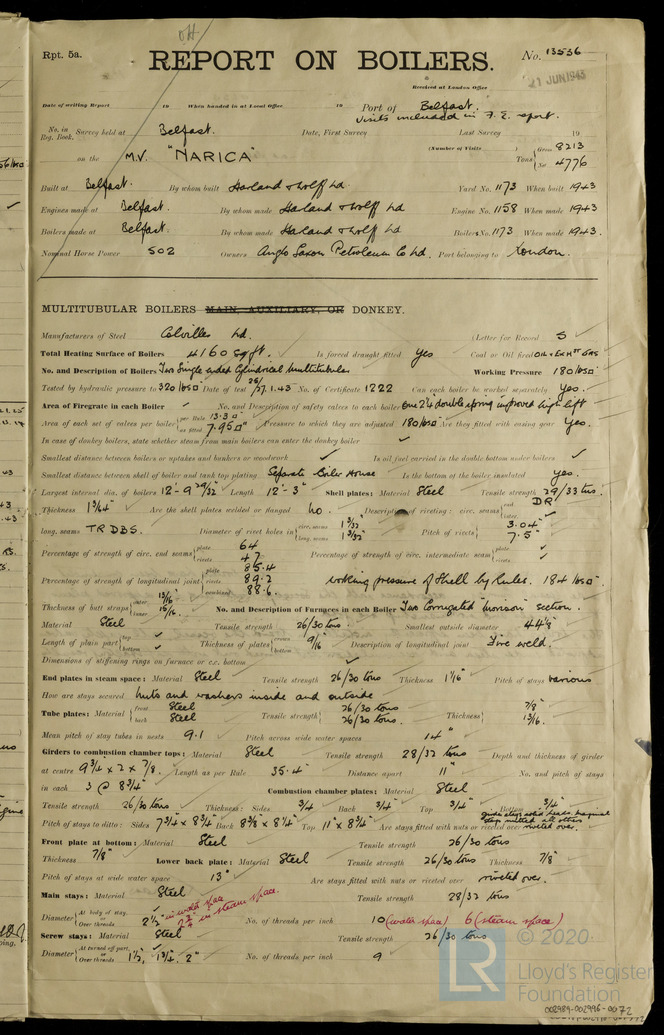 Rpt. 5a.
REPORT ON BOILERS.
No. 13536
21 JUN 1943
Received at London Office
Date of writing Report 19 When handed in at Local Office 19 Port of Belfast.
Visits included in F.E. report.
No. in Reg. Book. Survey held at Belfast. Date, First Survey Last Survey 19
(Number of Visits )
on the M.V. "NARICA" Tons Gross 8213 Net 4776
Built at Belfast. By whom built Harland & Wolff Ld. Yard No. 1173 When built 1943
Engines made at Belfast. By whom made Harland & Wolff Ld Engine No. 1158 When made 1943
Boilers made at Belfast. By whom made Harland & Wolff Ld. Boiler No. 1173 When made 1943.
Nominal Horse Power 502 Owners Anglo Saxon Petroleum Co Ld. Port belonging to London.
MULTITUBULAR BOILERS MAIN, AUXILIARY, OR DONKEY.
Manufacturers of Steel Colvilles Ld. (Letter for Record S
Total Heating Surface of Boilers 4160 sq ft. Is forced draught fitted Yes Coal or Oil fired OIL & EXHST GAS
No. and Description of Boilers Two Single ended Cylindrical Multitubular Working Pressure 180 lbs □"
Tested by hydraulic pressure to 320 lbs □" Date of test 26/27.1.43 No. of Certificate 1222 Can each boiler be worked separately Yes.
Area of Firegrate in each Boiler ✓ No. and Description of safety valves to each boiler One 2¼ double spring improved high lift
Area of each set of valves per boiler per Rule 13.30" as fitted 7.95 □" Pressure to which they are adjusted 180 lbs □" Are they fitted with easing gear Yes.
In case of donkey boilers, state whether steam from main boilers can enter the donkey boiler ✓
Smallest distance between boilers or uptakes and bunkers or woodwork ✓ Is oil fuel carried in the double bottom under boilers ✓
Smallest distance between shell of boiler and tank top plating Separate Boiler House Is the bottom of the boiler insulated yes.
Largest internal dia. of boilers 12'-9 29/32" Length 12'-3" Shell plates: Material Steel Tensile strength 29/33 tns.
Thickness 1 3/64" Are the shell plates welded or flanged No. Description of riveting: circ. seams end DR inter. ✓
long. seams TR DBS. Diameter of rivet holes in circ. seams 1 3/32" long. seams 1 3/32" Pitch of rivets 3.04" 7.5"
Percentage of strength of circ. end seams plate 64 rivets 47 Percentage of strength of circ. intermediate seam plate ✓ rivets ✓
Percentage of strength of longitudinal joint plate 85.4 rivets 89.2 combined 88.6 Working pressure of Shell by Rules. 184 lbs □"
Thickness of butt straps outer 13/16" inner 15/16" No. and Description of Furnaces in each Boiler Two Corrugated Morison section.
Material Steel Tensile strength 26/30 tns. Smallest outside diameter
Length of plain part top ✓ bottom ✓ Thickness of plates crown bottom 9/16 Description of longitudinal joint Fire weld.
Dimensions of stiffening rings on furnace or c.c. bottom ✓
End plates in steam space: Material Steel Tensile strength 26/30 tns Thickness 1 1/16" Pitch of stays various
How are stays secured Nuts and washers inside and outside
Tube plates: Material front Steel back Steel Tensile strength 26/30 tns 26/30 tns. Thickness 7/8" 13/16.
Mean pitch of stay tubes in nests 9.1 Pitch across wide water spaces 14"
Girders to combustion chamber tops: Material Steel Tensile strength 28/32 tns Depth and thickness of girder
at centre 9¾ x 2 x 7/8. Length as per Rule 35.4" Distance apart 11" No. and pitch of stays
in each 3 @ 8¾" Combustion chamber plates: Material Steel
Tensile strength 26/30 tns Thickness: Sides 3/4 Back 3/4" Top 3/4" Bottom 3/4"
Pitch of stays to ditto: Sides 7¾ x 8¾ Back 8⅜ x 8¼ Top 11" x 8¾ Are stays fitted with nuts or riveted over riveted over.
Front plate at bottom: Material Steel Tensile strength 26/30 tns
Thickness 7/8" Lower back plate: Material Steel Tensile strength 26/30 tns Thickness 7/8"
Pitch of stays at wide water space 13" Are stays fitted with nuts or riveted over riveted over.
Main stays: Material Steel Tensile strength 28/32 tns
Diameter At body of stay, or Over threads 2½" in water space 2¾ in steam space. No. of threads per inch 10 (water space) 6 (steam space)
Screw stays: Material Steel Tensile strength 26/30 tns
Diameter At turned off part, or Over threads 1½, 1¾, 2" No. of threads per inch 9
© 2020
LR
Lloyd's Register
Foundation
002989-002996-0072